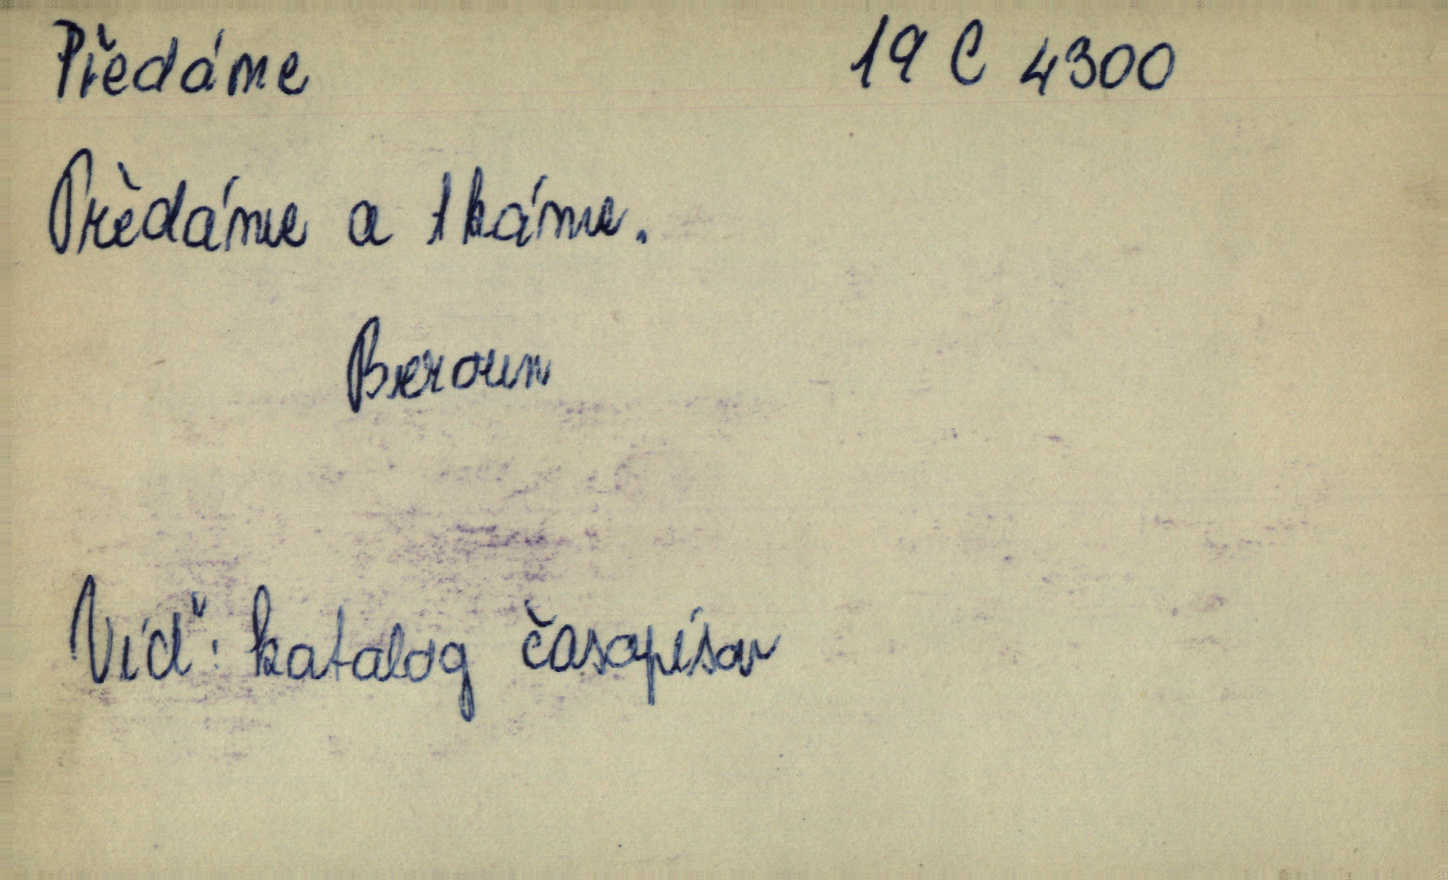 Předáme 19 C 4300
Předáme a tkáme.
Beroun
Viď: katalog časopisov